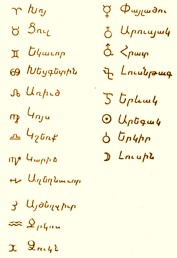 ♈ Խոյ
♉ Ցուլ
♊ Եկաւոր
♋ Խեցգետին
♌ Առիւծ
♍ Կոյս
♎ Կշեռք
♏ Կարիճ
♐ Աղեղնաւոր
Այծեղջիւր
♒ Ջրհոս
♓ Ձուկն
☿ Փայլածու
♀ Արուսյակ
♂ Հրատ
♃ Լուսնթագ
Երևակ
☉ Արեգակ
♁ Երկիր
☽ Լուսին